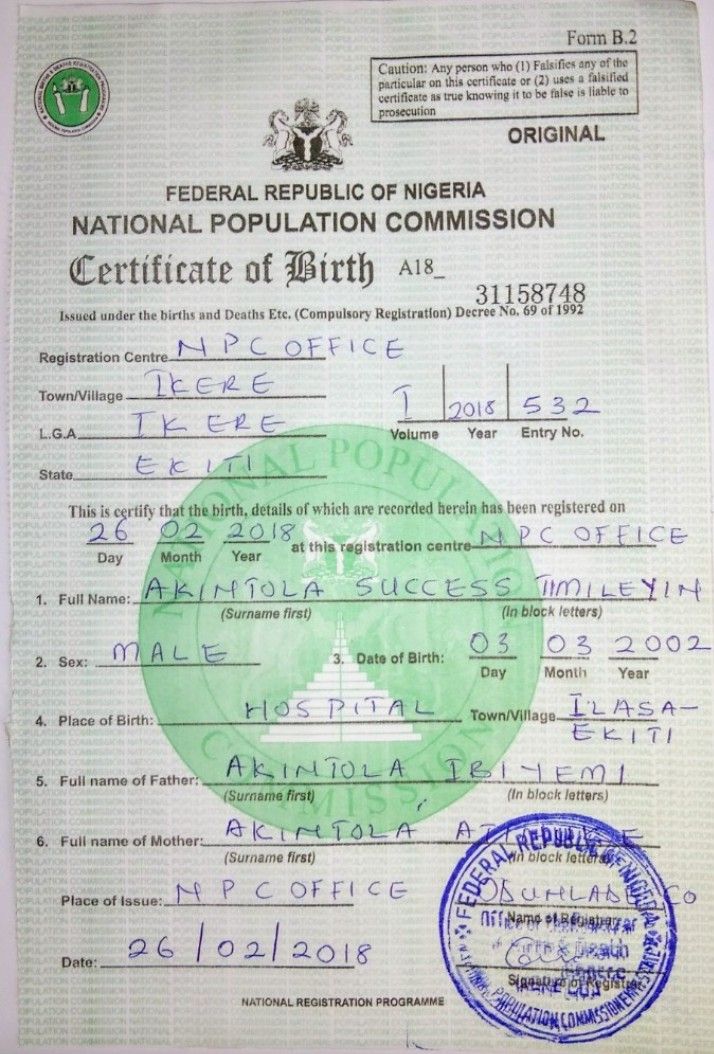 Form B.2
Caution: Any person who (1) Falsifies any of the
particular on this certificate or (2) uses a falsified
certificate as true knowing it to be false is liable to
prosecution
ORIGINAL
FEDERAL REPUBLIC OF NIGERIA
NATIONAL POPULATION COMMISSION
Certificate of Birth A18_ 31158748
Issued under the births and Deaths Etc. (Compulsory Registration) Decree No. 69 of 1992
Registration Centre NPC OFFICE
Town/Village IKERE
L.G.A IKERE
I 2018 532
Volume Year Entry No.
State EKITI
This is certify that the birth, details of which are recorded herein has been registered on
26 02 2018 at this registration centre NPC OFFICE
Day Month Year
1. Full Name: AKINTOLA SUCCESS TIMILEYIN
(Surname first) (In block letters)
2. Sex: MALE 3. Date of Birth: 03 03 2002
Day Month Year
4. Place of Birth: HOSPITAL Town/Village ILASA-
EKITI
5. Full name of Father: AKINTOLA IBIYEMI
(Surname first) (In block letters)
6. Full name of Mother: AKINTOLA
(Surname first) In block letters
Place of Issue: NPC OFFICE ODUNLADE CO
Name of Registrar
Date: 26/02/2018
Signature of Registrar
NATIONAL REGISTRATION PROGRAMME
FEDERAL REPUBLIC OF NIGERIA
NATIONAL POPULATION COMMISSION